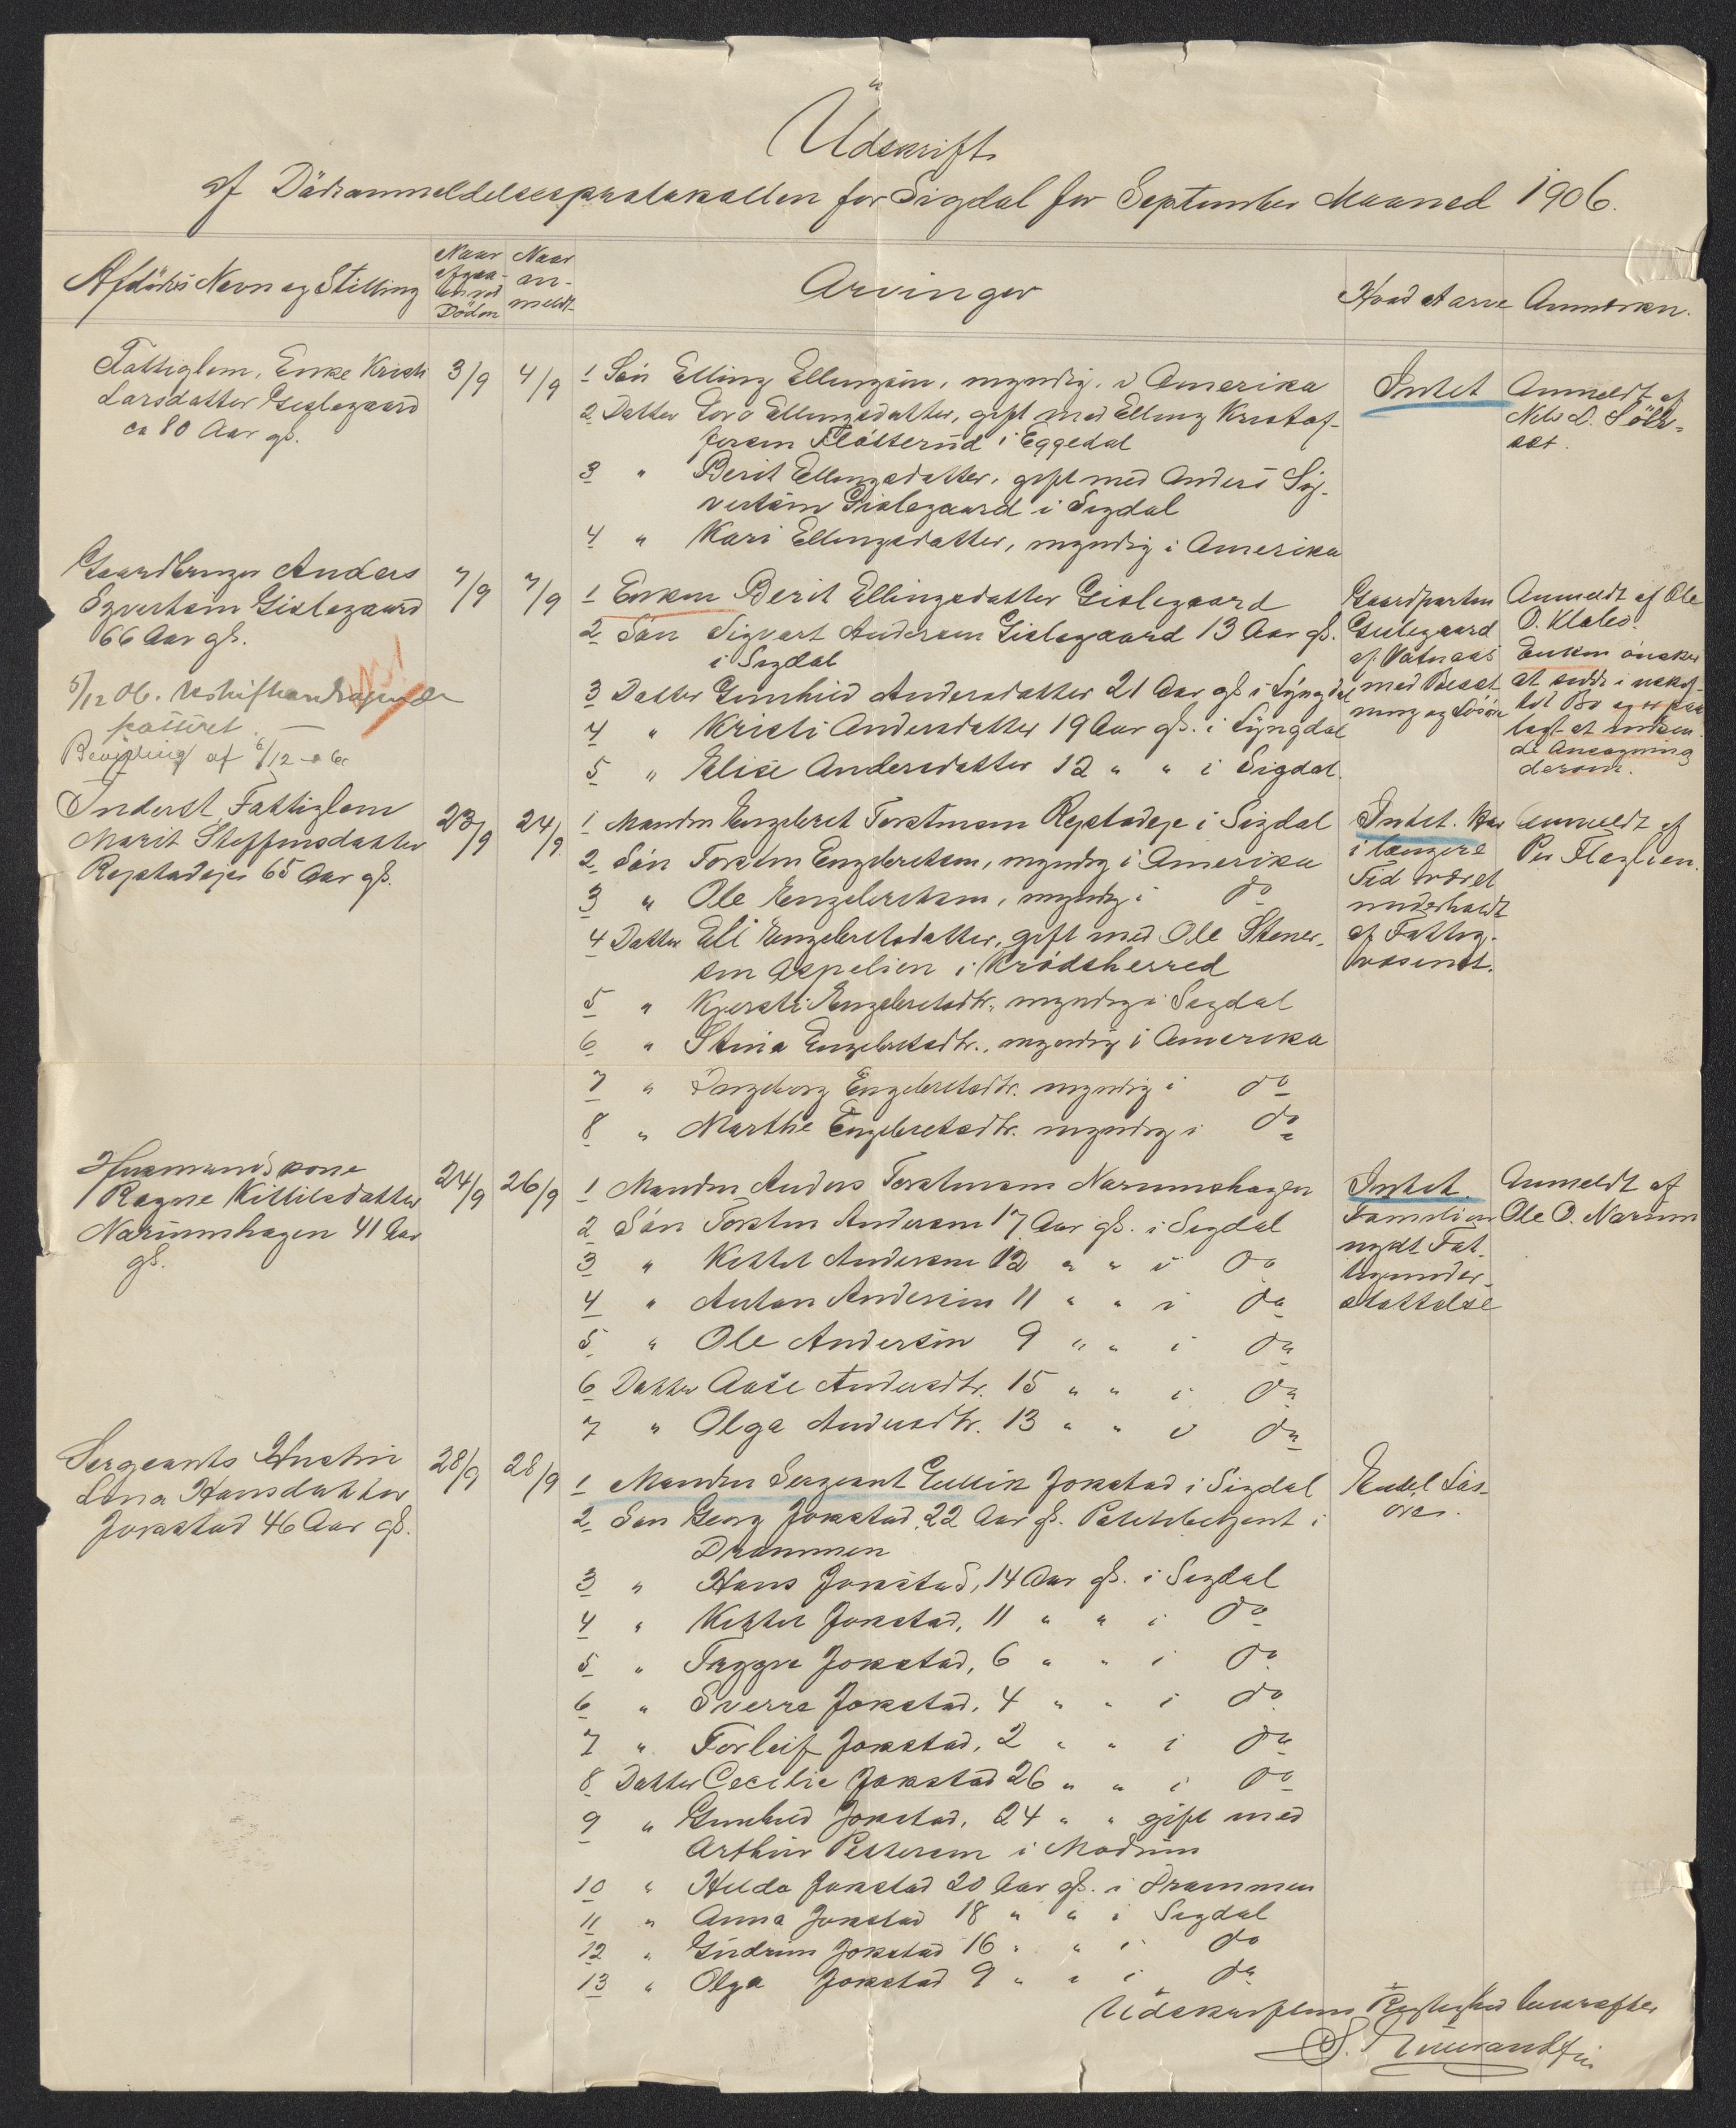 Udskrift
af Dødsanmeldelsesprotokollen for Sigdal for September Maaned 1906.
Afdødes Navn og Stilling
Naar
afgaa-
en ved
Døden
Naar
an-
meldt
Arvinger
Hvad at arve
Anmerkn.
Fattiglem, Enke Kristi
Larsdatter Gislegaard
ca 80 Aar gl.
3/9
4/9
1 Søn Elling Ellingsen, myndig, i Amerika
2 Datter Goro Ellingsdatter, gift med Elling Kristof-
fersen Flåtterud i Eggedal
3 " Berit Ellingsdatter, gift med Anders Sig-
vertsen Gislegaard i Sigdal
4 " Kari Ellingsdatter, myndig i Amerika
Intet
Anmeldt af
Nils L.
Gaardbruger Anders
Sgvertsen Gislegaard
66 Aar gl.
5/12 06.
passeret.
Bevilling af 6/12 06
7/9
7/9
1 Enken Berit Ellingsdatter Gislegaard
2 Søn Sigvart Andersen Gislegaard 13 Aar gl.
i Sigdal
3 Datter Gunhild Andersdatter 21 Aar gl. i Lyngdal
4 " Kristi Andersdatter 19 Aar gl. i Lyngdal
5 " Elise Andersdatter 12 " " i Sigdal.
Gaardparten
Gislegaard
af Vatnaas
med Besæt-
ning og Løsøre
Anmeldt af Ole
O. Kleles.
Enken ønsker
at sidde i uskif-
tet Bo og er paa
lagt at indsen-
de Ansøgning
derom.
Inderst, Fattiglem
Marit Steffensdatter
Repstadeje 65 Aar gl.
23/9
24/9
1 Manden Engebret Torstensen Repstadeje i Sigdal
2 Søn Torsten Engebretsen, myndig i Amerika
3 " Ole Engebretsen, myndig i do
4 Datter Eli Engebretsdatter, gift med Ole Stener-
sen Aspelien i Krødsherred
5 " Kjersti Engebretsdtr. myndig i Sigdal
6 " Stina Engebretsdtr., myndig i Amerika
7 " Ingeborg Engebretsdtr. myndig i do
8 " Marthe Engebretsdtr. myndig i do
Intet. Har
i længere
Tid været
underholdt
af Fattig-
væsenet.
Anmeldt af
Per Flaglien.
Husmandskone
Ragne Kittilsdatter
Narumshagen 41 Aar
gl.
24/9
26/9
1 Manden Anders Torstensen Narumshagen
2 Søn Torsten Andersen 17 Aar gl. i Sigdal
3 " Kittil Andersen 12 " " i do
4 " Anton Andersen 11 " " i do
5 " Ole Andersen 9 " " i do
6 Datter Aase Andersdtr. 15 " " i do
7 " Olga Andersdtr. 13 " " i do
Intet.
Familien
nydt Fat-
tigunder-
støttelse
Anmeldt af
Ole O. Narum
Sergeants Hustru
Lena Hansdatter
Jokstad 46 Aar gl.
28/9
28/9
1 Manden Sergeant Gullik Jokstad i Sigdal
2 Søn Georg Jokstad, 22 Aar gl. Politibetjent i
Drammen
3 " Hans Jokstad, 14 Aar gl. i Sigdal
4 " Kittil Jokstad, 11 " " i do
5 " Trygve Jokstad, 6 " " i do
6 " Sverre Jokstad, 4 " " i do
7 " Torleif Jokstad, 2 " " i do
8 Datter Cecilie Jokstad 26 " " i do
9 " Gunhild Jokstad, 24 " " gift med
Arthur Pettersen i Modum
10 " Hilda Jokstad 20 Aar gl. i Drammen
11 " Anna Jokstad 18 " " i Sigdal
12 " Gudrun Jokstad 16 " " i do
13 " Olga Jokstad 9 " " i do
Endel Løs-
øre.
Udskriftens Rigtighed bekræftes